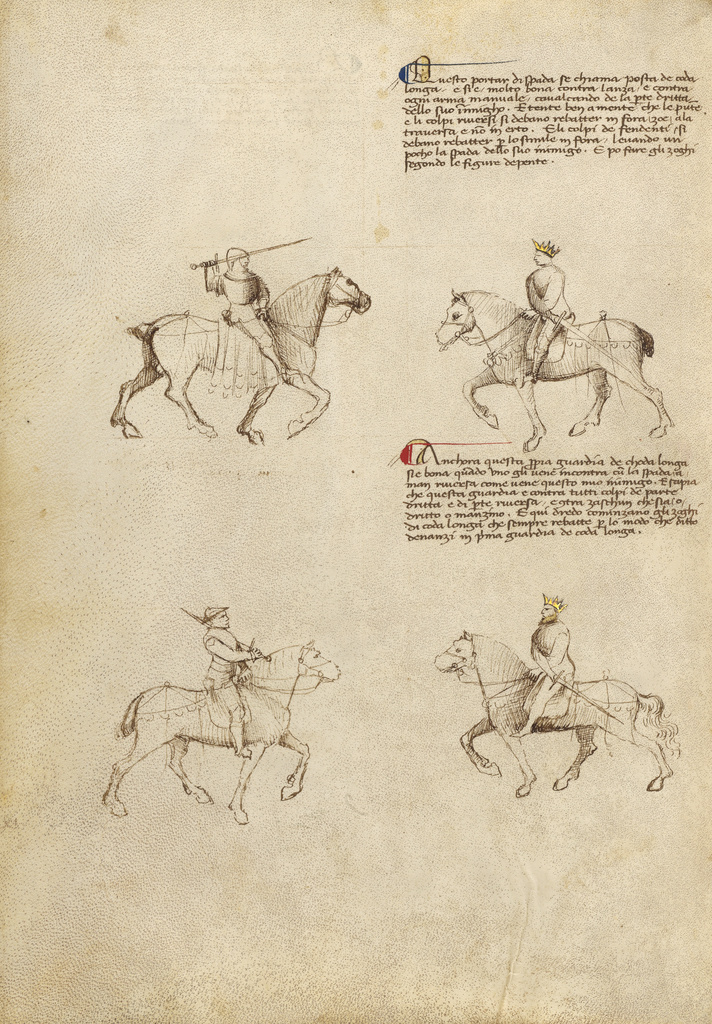 Questo portar di spada se chiama posta de coda
longa. e si e molto bona contra lanza, e contra
ogni arma manuale, cavalcando de la pte dritta
dello suo inimigho. E tente ben a mente che le pūte
e li colpi riversi si debano rebatter in fora, zoe, ala
traversa e nō in erto. E li colpi de fendenti, si
debano rebatter p lo simile in fora, levando un
pocho la spada dello suo inimigo. E po fare gli zoghi
segondo le figure depente.
Anchora questa ppia guardia de choda longa
si e bona quādo uno gli vene incontra cū la spada ā
man riversa come vene questo mio inimigo. E sapia
che questa guardia e contra tutti colpi de parte
dritta e di pte riversa, e ctra zaschun che sia, o
dritto o manzino. E qui dredo cominzano gli zoghi
di coda longa che sempre rebatte p lo modo che ditto
denanzi in pma guardia de coda longa.